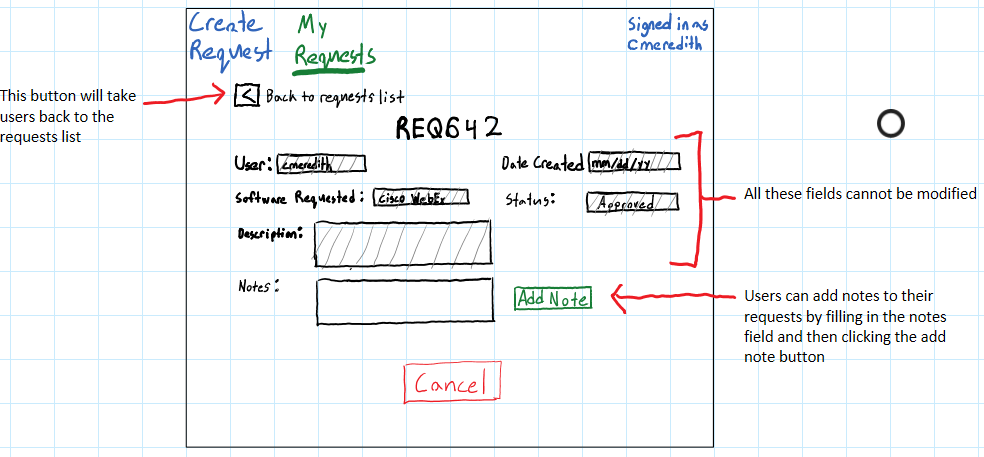 Create My
Request Requests
Signed in as
Cmeredith
This button will take
users back to the
requests list
< Back to requests list
REQ642
User: Cmeredith
Date Created mm/dd/yy
Software Requested: Cisco WebEx
Status: Approved
All these fields cannot be modified
Description:
Notes:
Add Note
Users can add notes to their
requests by filling in the notes
field and then clicking the add
note button
Cancel